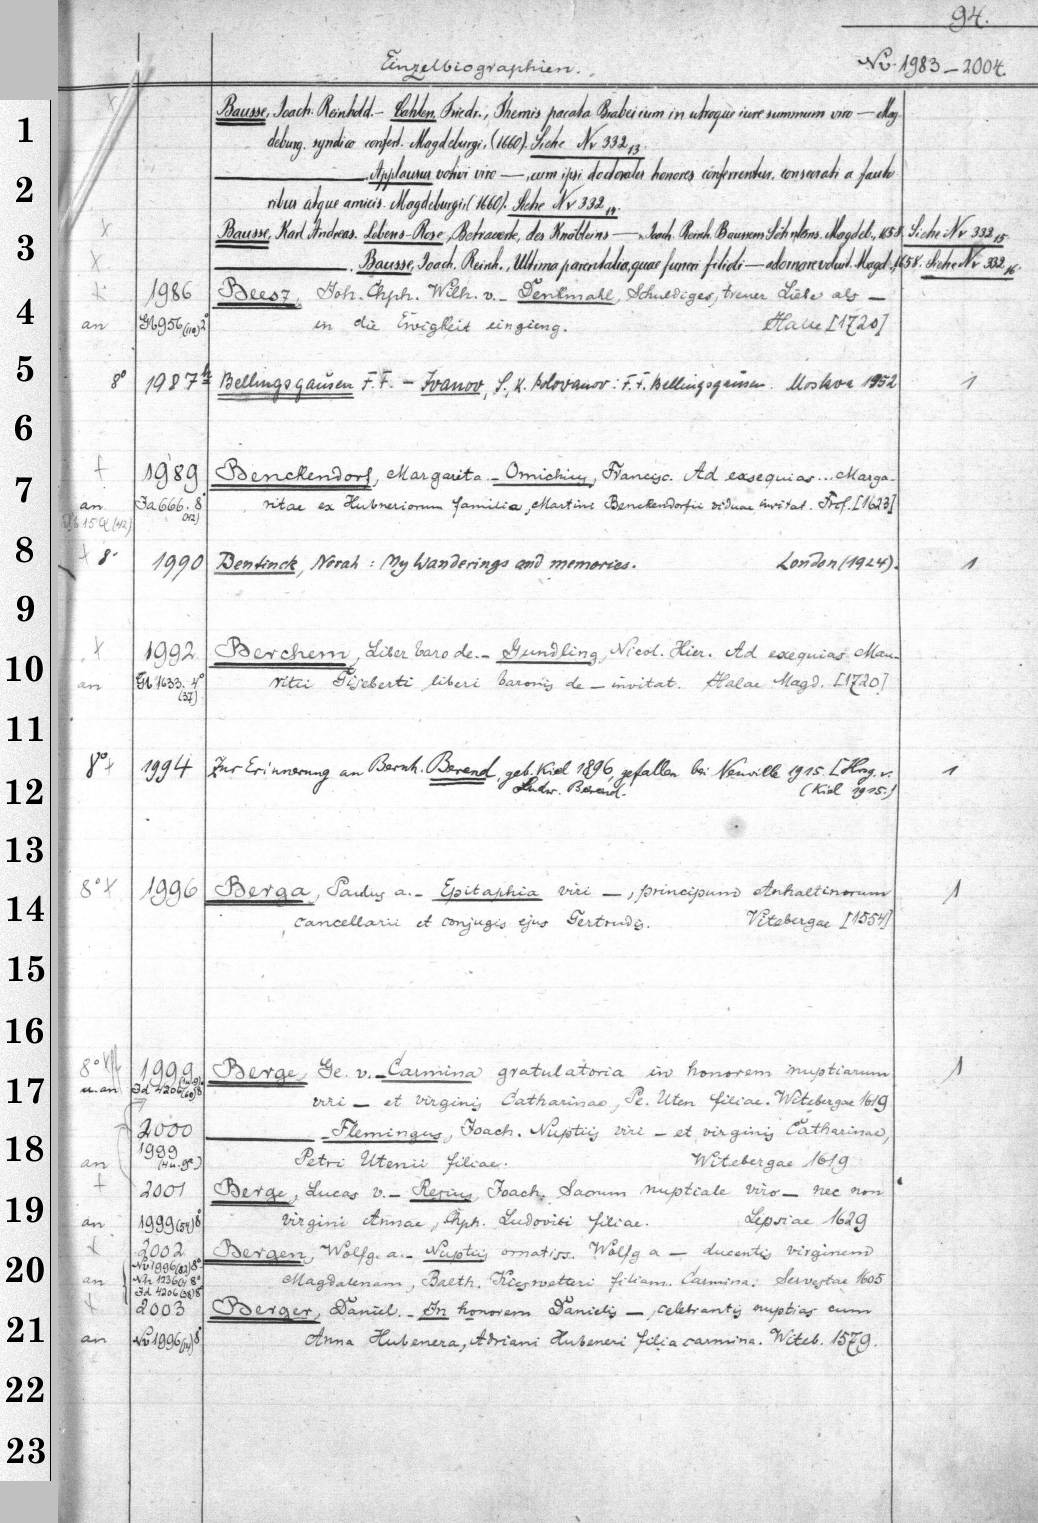 94.
Einzelbiographien. Nv. 1983–2004.
1 Bausse, Joach. Reinhold.– Cahlen, Friedr., Themis pacata Brabeicum in utroque iure summum viro — Mag-
deburg. syndico confert. Magdeburgi, (1660). Siehe Nv 332 13.
2 ———. Applausus votivi viro —, cum ipsi doctorales honores conferrentur, consecrati a fauto-
ribus atque amicis. Magdeburgi, (1660). Siehe Nv 332 14.
3 x Bausse, Karl Andreas. Lebens-Rose, Betrauerte, des Knäbleins —, Joach. Reinh. Baussen Söhnleins. Magdeb., 1658. Siehe Nv 332 15
x ———. Bausse, Joach. Reinh., Ultima parentalia, quae funeri filioli — adornare voluit. Magd., 1658. Siehe Nv 332 16.
x 1986 Beesz, Joh. Chph. Wilh. v.– Denkmahl, Schuldiges, treuer Liebe als —
4 an Gb 956 (110) 2° in die Ewigkeit eingieng. Halle [1720]
5 8° 1987 h Bellingsgauzen F. F. – Ivanov, S., K. Bolovanov: F. F. Bellingsgauzen. Moskva 1952 1
6
† 1989 Benckendorf, Margarita.– Omichius, Francisc. Ad exsequias ... Marga-
7 an Ja 666. 8° (12) ritae ex Hubneriorum familia, Martini Benckendorfii viduae invitat. Frcf. [1623]
8 x 8° 1990 Bentinck, Norah : My Wanderings and memories. London (1924). 1
9
10 x 1992 Berchem, Liber baro de.– Gundling, Nicol. Hier. Ad exequias Mau-
an Gb 1633. 4° (37) ritii Gisberti liberi baronis de — invitat. Halae Magd. [1720]
11
8° x 1994 Zur Erinnerung an Bernh. Berend, geb. Kiel 1896, gefallen bei Neuville 1915. [Hrsg. v. 1
12 Ludw. Berend. (Kiel 1915.)
13
8° x 1996 Berga, Paulus a.– Epitaphia viri —, principum Anhaltinorum 1
14 cancellarii et conjugis ejus Gertrudis. Vitebergae [1554]
15
16
8° 1999 Berge, Ge. v.– Carmina gratulatoria in honorem nuptiarum 1
17 u. an Jd 4206 (60) 8° viri — et virginis Catharinae, Pe. Uten filiae. Witebergae 1619
2000 ——— – Flemingus, Joach. Nuptiis viri — et virginis Catharinae,
18 an 1999 Petri Utenii filiae. Witebergae 1619
† 2001 Berge, Lucas v.– Resius, Joach. Sacrum nuptiale viro — nec non
19 an 1999 (54) 8° virgini Annae, Chph. Ludovici filiae. Lipsiae 1629
x 2002 Bergen, Wolfg. a.– Nuptiis ornatiss. Wolfg a — ducentis virginem
20 an Nv 1996 (82) 8° Magdalenam, Balth. Kieswetteri filiam. Carmina. Servestae 1605
Jd 4206 (38) 8°
x 2003 Berger, Daniel.– In honorem Danielis —, celebrantis nuptias cum
21 an Nv 1996 (14) 8° Anna Hubenera, Adriani Hubeneri filia carmina. Witeb. 1579.
22
23